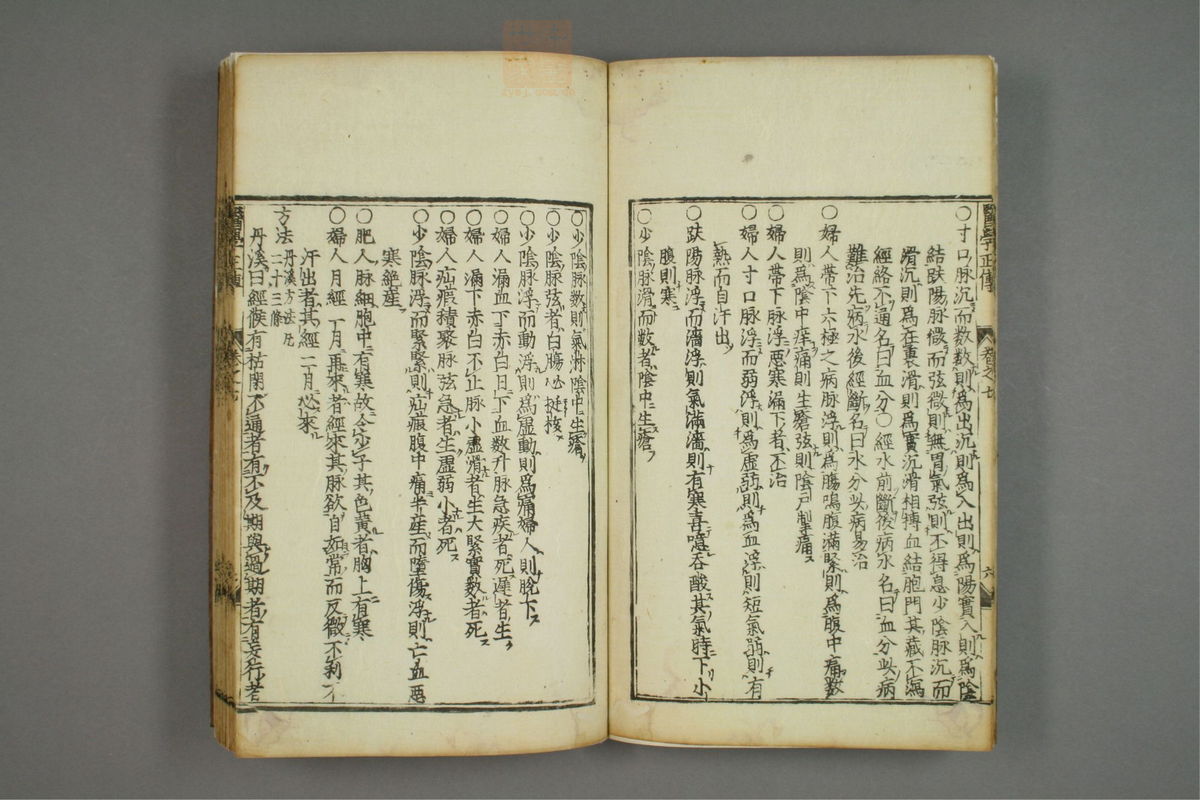 ○寸口脉沉而數數則爲出沉則爲入出則爲陽實入則爲陰
結趺陽脉微而弦微則無胃氣弦則不得息少陰脉沉而
滑沉則爲在裏滑則爲實沉滑相摶血結胞門其藏不瀉
經絡不通名曰血分○經水前斷後病水名曰血分此病
難治先病水後經斷名曰水分此病易治
○婦人帶下六極之病脉浮則爲腸鳴腹滿緊則爲腹中痛數
則爲陰中痒痛則生瘡弦則陰戶掣痛
○婦人帶下脉浮惡寒漏下者不治
○婦人寸口脉浮而弱浮則爲虛弱則爲血浮則短氣弱則有
熱而自汗出
○趺陽脉浮而濇浮則氣滿濇則有寒喜噫吞酸其氣時下小
腹則寒
○少陰脉滑而數者陰中生瘡
○少陰脉數則氣淋陰中生瘡
○少陰脉弦者白腸必挺核
○少陰脉浮而動浮則爲虛動則爲痛婦人則脫下
○婦人漏血下赤白日下血數升脉急疾者死遲者生
○婦人漏下赤白不止脉小虛滑者生大緊實數者死
○婦人疝瘕積聚脉弦急者生虛弱小者死
○少陰脉浮而緊緊則疝瘕腹中痛半産而墮傷浮則亡血惡
寒絶産
○肥人脉細胞中有寒故令少子其色黃者胸上有寒
○婦人月經一月再來者經來其脉欲自如常而反微不利不
汗出者其經二月必來
方法
丹溪方法凡
二十三條
丹溪曰經候有枯閉不通者有不及期與過期者有妄行者
醫學正傳
卷之七
六